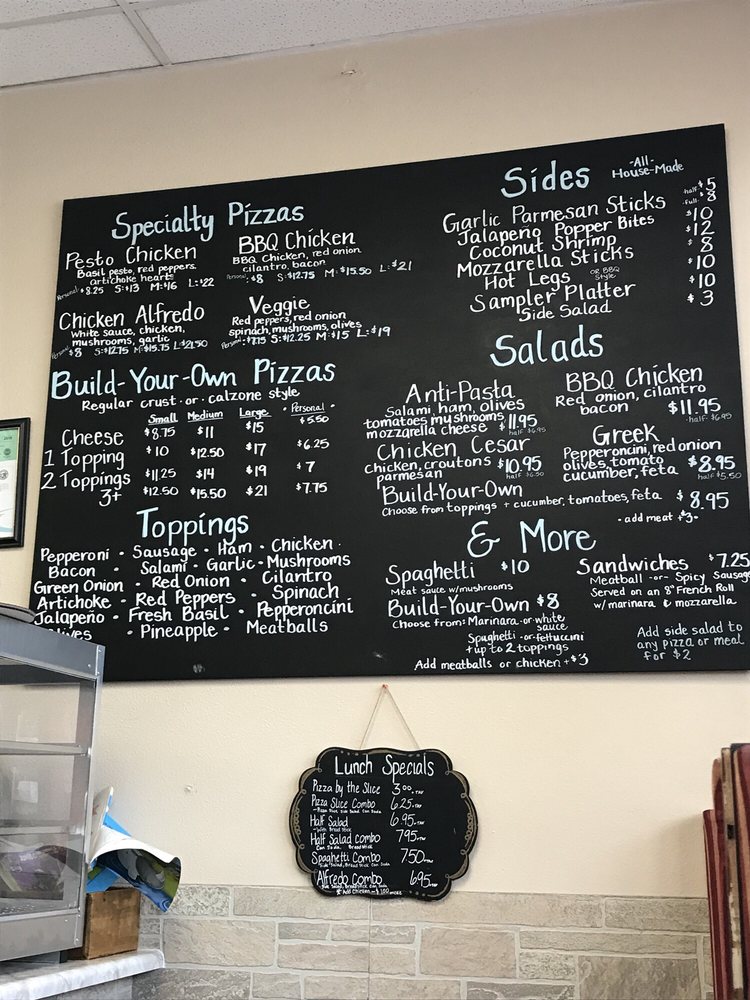 Specialty Pizzas
Pesto Chicken
Basil pesto, red peppers,
artichoke hearts
Personal $8.25 S: $13 M: $16 L: $22
BBQ Chicken
BBQ Chicken, red onion
cilantro, bacon
Personal $8 S: $12.75 M: $15.50 L: $21
Chicken Alfredo
White sauce, chicken,
mushrooms, garlic
Personal $8 S: $12.75 M: $15.75 L: $21.50
Veggie
Red peppers, red onion
spinach, mushrooms, olives
Personal $7.75 S: $12.25 M: $15 L: $19
Build-Your-Own Pizzas
Regular crust · or · calzone style
Small Medium Large Personal
Cheese $8.75 $11 $15 $5.50
1 Topping $10 $12.50 $17 $6.25
2 Toppings $11.25 $14 $19 $7
3+ $12.50 $15.50 $21 $7.75
Toppings
Pepperoni · Sausage · Ham · Chicken ·
Bacon · Salami · Garlic · Mushrooms
Green Onion · Red Onion · Cilantro
Artichoke · Red Peppers · Spinach
Jalapeño · Fresh Basil · Pepperoncini
Olives · Pineapple · Meatballs
Sides
-All-
House-Made
Garlic Parmesan Sticks half $5
full $8
Jalapeño Popper Bites $10
Coconut Shrimp $12
Mozzarella Sticks $8
Hot Legs OR BBQ Style $10
Sampler Platter $10
Side Salad $3
Salads
Anti-Pasta
Salami, ham, olives
tomatoes mushrooms $11.95
mozzarella cheese half $6.95
BBQ Chicken
Red onion, cilantro
bacon $11.95
half $6.95
Chicken Cesar
chicken, croutons $10.95
parmesan half $6.50
Greek
Pepperoncini, red onion
olives, tomato $8.95
cucumber, feta half $5.50
Build-Your-Own
Choose from toppings + cucumber, tomatoes, feta $8.95
· add meat +$3 ·
& More
Spaghetti $10
Meat sauce w/mushrooms
Build-Your-Own $8
Choose from: Marinara · or · white
sauce
Spaghetti · or · fettuccini
+ up to 2 toppings
Add meatballs or chicken +$3
Sandwiches $7.25
Meatball -or- Spicy Sausage
Served on an 8" French Roll
w/ marinara & mozzarella
Add side salad to
any pizza or meal
for $2
Lunch Specials
Pizza by the Slice 3.00 +TAX
Pizza Slice Combo 6.25 +TAX
Half Salad 6.95 +TAX
-With Bread Stick
Half Salad combo 7.95 +TAX
Can Soda. Bread Stick
Spaghetti Combo 7.50 +TAX
Side Salad, Bread Stick Can Soda
Alfredo Combo 6.95 +TAX
Side Salad, Bread Stick Can Soda